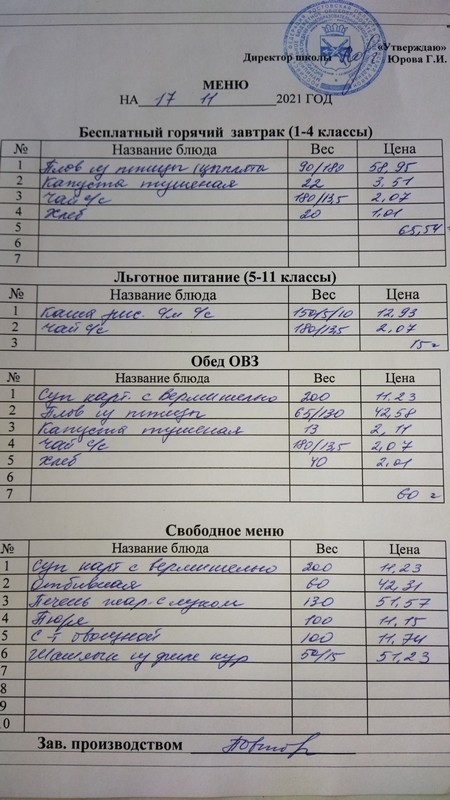 «Утверждаю»
Директор школы Юрова Г.И.
МЕНЮ
НА 17 11 2021 ГОД
Бесплатный горячий завтрак (1-4 классы)
№ Название блюда Вес Цена
1 Плов из птицы (цыплята 90/180 58,95
2 Капуста тушеная 22 3,51
3 Чай с/с 180/13,5 2,07
4 Хлеб 20 1,01
5 65,54
6
7
Льготное питание (5-11 классы)
№ Название блюда Вес Цена
1 Каша рис. 150/5/10 12,93
2 Чай с/с 180/13,5 2,07
3 15
Обед ОВЗ
№ Название блюда Вес Цена
1 Суп карт. с вермишелью 200 11,23
2 Плов из птицы 65/130 42,58
3 Капуста тушеная 13 2,11
4 Чай с/с 180/13,5 2,07
5 Хлеб 40 2,01
6
7 60
Свободное меню
№ Название блюда Вес Цена
1 Суп карт с вермишелью 200 11,23
2 Отбивная 60 42,31
3 Печень жар. с луком 130 51,57
4 Пюре 100 11,15
5 С-т овощной 100 11,74
6 Шашлык из филе кур 50/15 51,23
7
8
9
10
Зав. производством